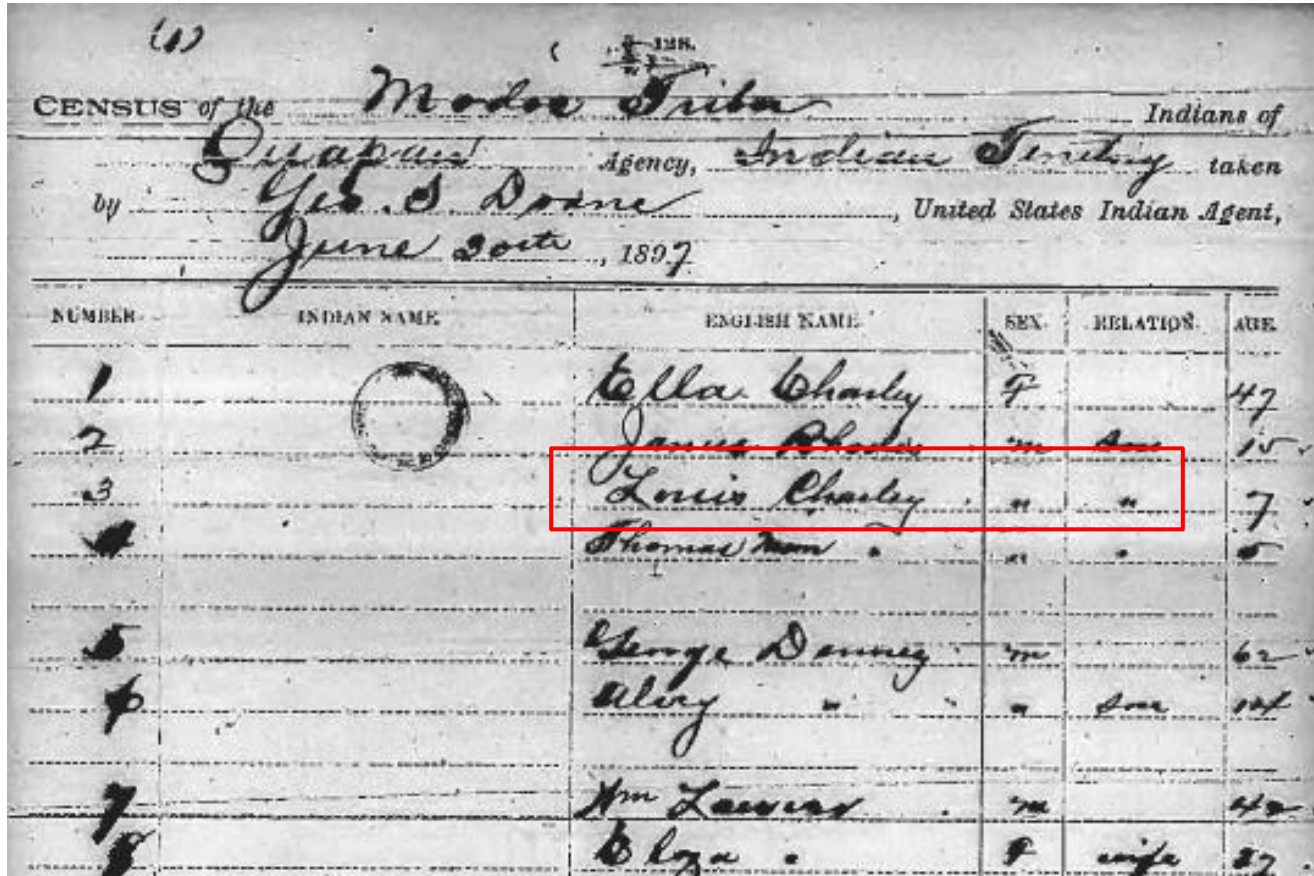 (1)
128.
CENSUS of the Modoc Tribe Indians of
Quapaw Agency, Indian Territory taken
by Geo. S. Doane, United States Indian Agent,
June 30th, 1897
NUMBER INDIAN NAME ENGLISH NAME SEX. RELATION AGE.
1 Ella Charley F 47
2 James m son 15
3 Louis Charley " " 7
4 Thomas " " " 5
5 George Denney m 62
6 " " son 14
7 Wm m
8 " F wife 27